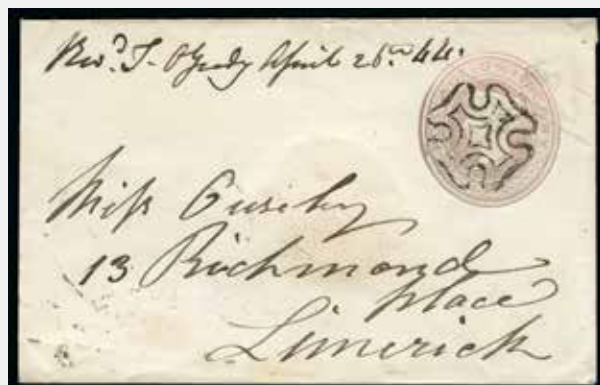 Rev.d T. O'Grady April 26th 44.
Miss
13 Richmond
place
Limerick